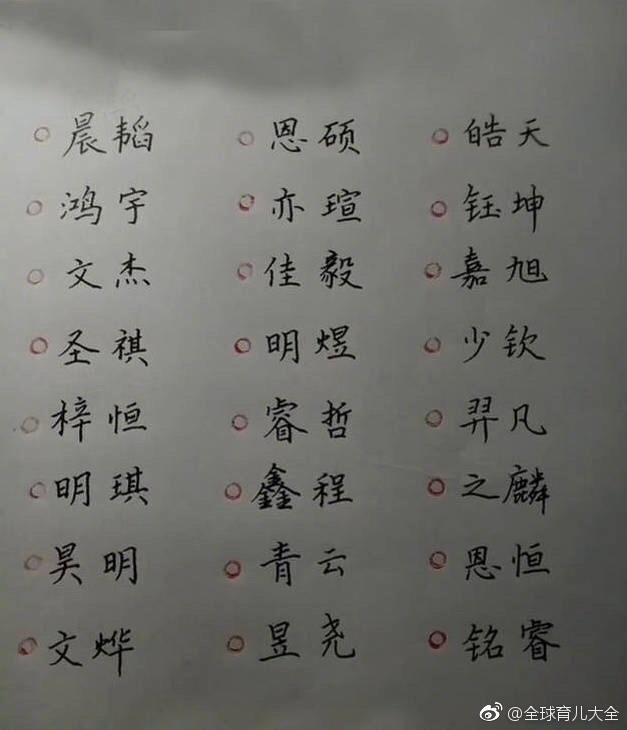 晨韬 恩硕 皓天
鸿宇 亦瑄 钰坤
文杰 佳毅 嘉旭
圣祺 明煜 少钦
梓恒 睿哲 羿凡
明琪 鑫程 之麟
昊明 青云 恩恒
文烨 昱尧 铭睿
@全球育儿大全